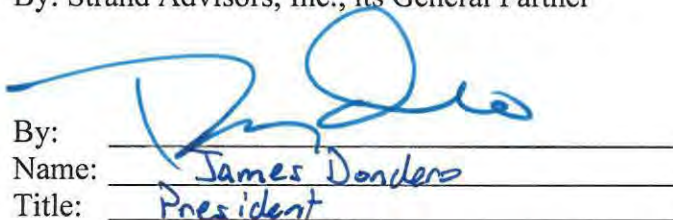 By: Strand Advisors, Inc., its General Partner
By:
Name: James Dondero
Title: President